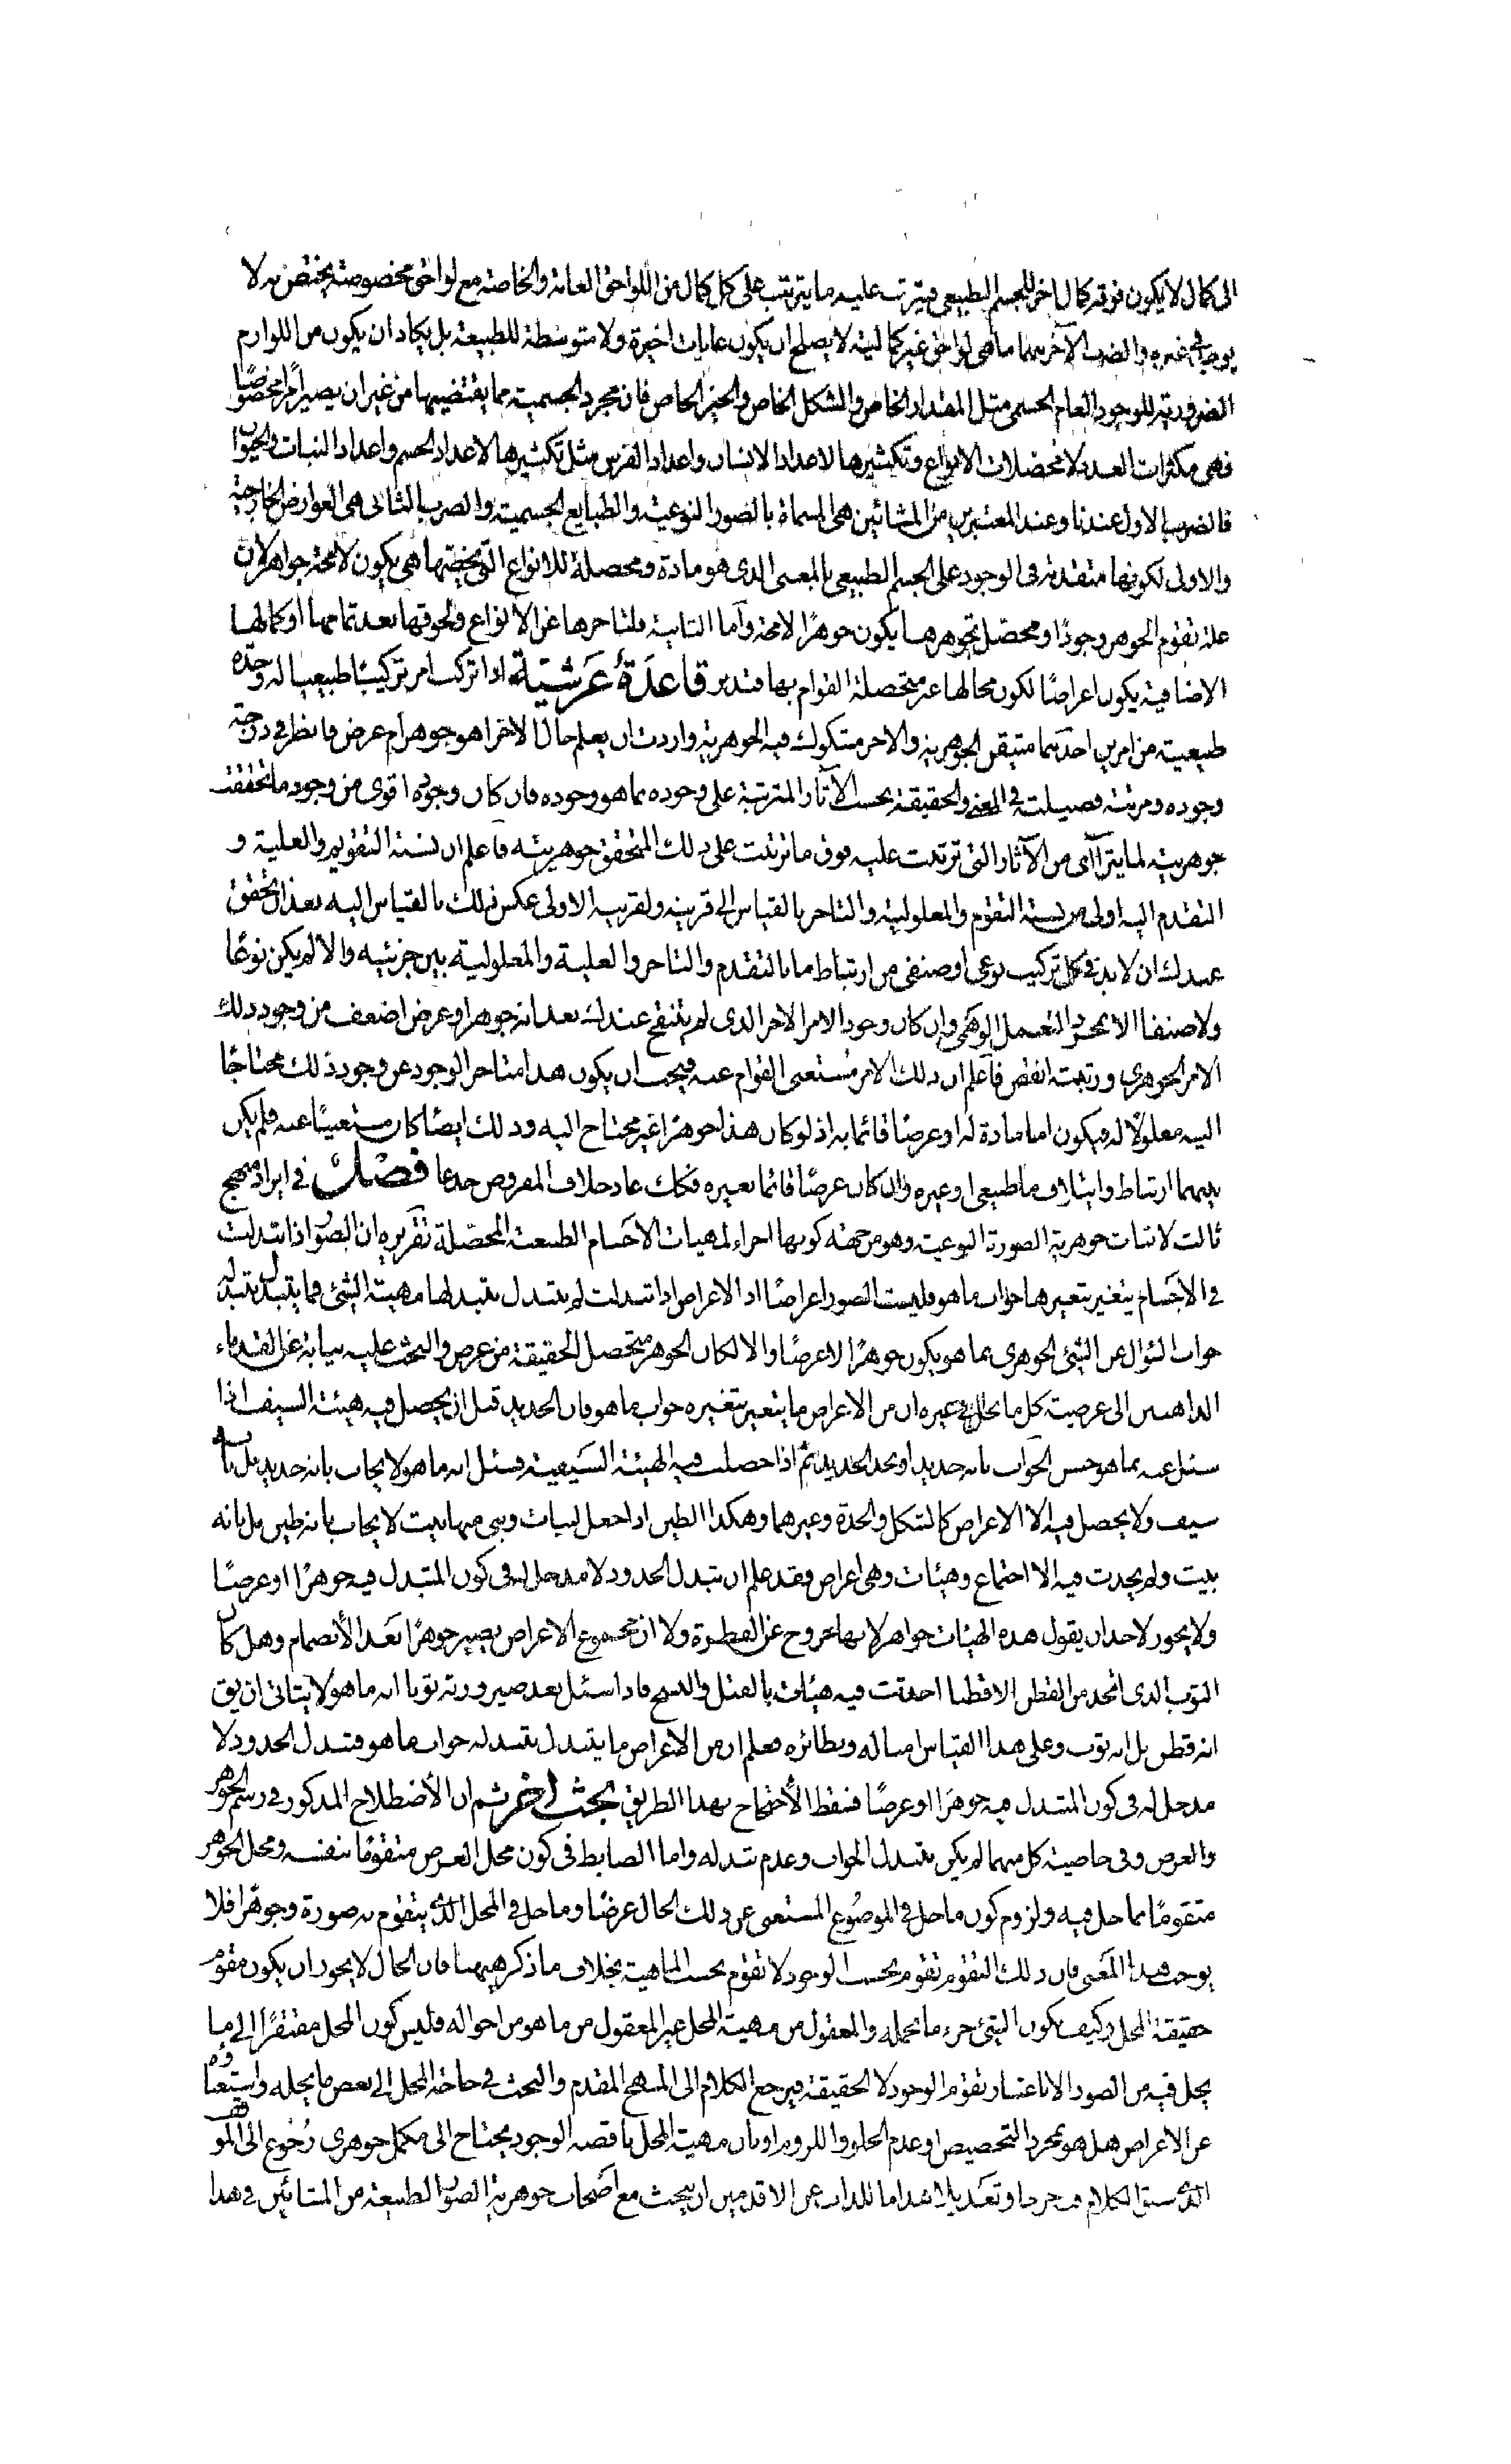 الى كمال لا يكون فوقه كمال اخر للجسم الطبيعي فيترتب عليه ما يترتب على كل كمال من اللواحق العامة والخاصة مع لواحق مخصوصة يختص به لا
يوجد في غيره والضرب الآخر منهما ما هي لواحق غير كمالية لا يصلح ان يكون غايات اخيرة ولا متوسطة للطبيعة بل يكاد ان يكون من اللوازم
الضرورية للوجود العام الجسمي مثل المقدار الخاص والشكل الخاص والحيز الخاص فان مجرد الجسمية مما يقتضيها من غير ان يصير امرا مخصوصًا
فهي مكثرات العدد لا محصلات الانواع وتكثيرها لاعداد الانسان واعداد الفرس مثل تكثيرها لاعداد الجسم واعداد النبات والحيوان
فالضرب الاول عندنا وعند المعتبرين من المشائين هي المسماة بالصور النوعية والطبايع الجسمية والضرب الثاني هي العوارض الخارجية
والاولى لكونها متقدمة في الوجود على الجسم الطبيعي بالمعنى الذي هو مادة ومحصلة للانواع التي يخصها هي يكون لا محة جواهر لان
علة تقوم الجوهر وجودًا ومحصل تجوهرها يكون جوهرًا لا محة وأما الثانية فلتاخرها عن الأنواع ولحوقها بعد تمامها او كمالها
الاضافية يكون اعراضًا لكون محالها غير متحصلة القوام بها فتدبر قاعدة عرشية اذا تركب امر تركيبًا طبيعيا له وحدة
طبيعية من امرين احدهما متيقن الجوهرية والاخر مشكوك فيه الجوهرية واردت ان يعلم حال الاخر اهو جوهر ام عرض فانظر في درجة
وجوده ومرتبة فصيلت في المعنى والحقيقة بحسب الآثار المترتبة على وجوده بما هو وجوده فان كان وجوده اقوى من وجود ما تحققت
جوهريته لما يترا آى من الآثار التي ترتبت عليه فوق ما ترتبت على ذلك المتحقق جوهريته فاعلم ان نسبة التقويم والعلية و
التقدم اليه اولى من نسبة التقوم والمعلولية والتاخر بالقياس الى قرينه ولقرينه الاولى عكس ذلك بالقياس اليه بعد ان تحقق
عندك ان لا بد في كل تركيب نوعي او صنفي من ارتباط ما بالتقدم والتاخر والعلية والمعلولية بين جزئيه والا لم يكن نوعًا
ولا صنفا الا بمجرد التعمل الوهمي وان كان وجود الامر الاخر الذي لم يتنقح عندك بعد انه جوهر او عرض اضعف من وجود ذلك
الامر الجوهري ورتبته انقص فاعلم ان ذلك الامر مستغنى القوام عنه فيجب ان يكون هذا متاخر الوجود عن وجود ذلك محتاجًا
اليه معلولًا له فيكون اما مادة له او عرضًا قائما به اذ لو كان هذا جوهرًا غير محتاج اليه وذلك ايضًا كان مستغنيًا عنه فلم يكن
بينهما ارتباط وايتلاف ما طبيعي او غيره وان كان عرضًا قائما بغيره فكك عاد خلاف المفروض جدعا فصل في ايراد منهج
ثالث لاثبات جوهرية الصورة النوعية وهو من جهة كونها اجزاء لمهيات الاجسام الطبيعية المحصلة تقريره ان الصور اذا تبدلت
في الاجسام يتغير بتغيرها جواب ما هو فليست الصور اعراضًا اذ الاعراض اذا تبدلت لم يتبدل بتبدلها مهية الشئ فما يتبدل بتبدله
جواب السؤال عن الشئ الجوهري بما هو يكون جوهرًا لا عرضًا والا لكان الجوهر متحصل الحقيقة من عرض والبحث عليه نيابة عن القدماء
الذاهبين الى عرضية كل ما يحل في غيره ان من الاعراض ما يتغير بتغيره جواب ما هو فان الحديد قبل ان يحصل فيه هيئة السيف اذا
سئل عنه بما هو حسن الجواب بانه حديد او بحد الحديد ثم اذا حصلت فيه الهيئة السيفية فسئل انه ما هو لا يجاب بانه حديد بل بانه
سيف ولا يحصل فيه الا الاعراض كالشكل والحدة وغيرهما وهكذا الطين اذا جعل لبنات وبنى منها بيت لا يجاب بانه طين بل بانه
بيت ولم يحدث فيه الا اجتماع وهيئات وهى اعراض فقد علم ان تبدل الحدود لا مدخل له في كون المتبدل فيه جوهرًا او عرضًا
ولا يجوز لاحد ان يقول هذه الهيئات جواهر لانها خروج عن الفطرة ولا ان مجموع الاعراض يصير جوهرًا بعد الأنضمام وهل كان
الثوب الذي اتخد من القطن الا قطنا احدثت فيه هيئات بالفتل والنسج فاذا سئل بعد صيرورته ثوبا انه ما هو لا يتاتى ان يق
انه قطن بل انه ثوب وعلى هذا القياس امثاله ونظائره فعلم ان من الاعراض ما يتبدل بتبدله جواب ما هو فتبدل الحدود لا
مدخل له في كون المتبدل فيه جوهرًا او عرضًا فسقط الأحتجاج بهذا الطريق بحث اخر ثم ان الأصطلاح المذكور في رسم الجوهر
والعرض وفى خاصية كل منهما لم يكن بتبدل الجواب وعدم تبدله واما الضابط في كون محل العرض متقومًا بنفسه ومحل الجوهر
متقومًا بما حل فيه ولزوم كون ما حل في الموضوع المستغنى عن ذلك الحال عرضًا وما حل في المحل الذى يتقوم به صورة وجوهرًا فلا
يوجب هذا المعنى فان ذلك التقوم تقوم بحسب الوجود لا تقوم بحسب الماهية بخلاف ما ذكر ههنا فان الحال لا يجوز ان يكون مقوم
حقيقة المحل وكيف يكون الشئ جزء ما يحمله والمعقول من مهية المحل غير المعقول من ما هو من احواله فليس كون المحل مفتقرًا الى ما
يحل فيه من الصور الا باعتبار تقوم الوجود لا الحقيقة فيرجع الكلام الى المنهج المقدم والبحث في حاجة المحل الى بعض ما يحله واستغناؤه
عن الاعراض هل هو بمجرد التخصيص او عدم الخلو واللزوم او بان مهية المحل ناقصة الوجود يحتاج الى مكمل جوهرى رجوع الى الموقف
الذى سبق الكلام فيه جرحا وتعديلا هذا ما للذاب عن الاقدمين ان يبحث مع اصحاب جوهرية الصور الطبيعية من المشائين في هذا